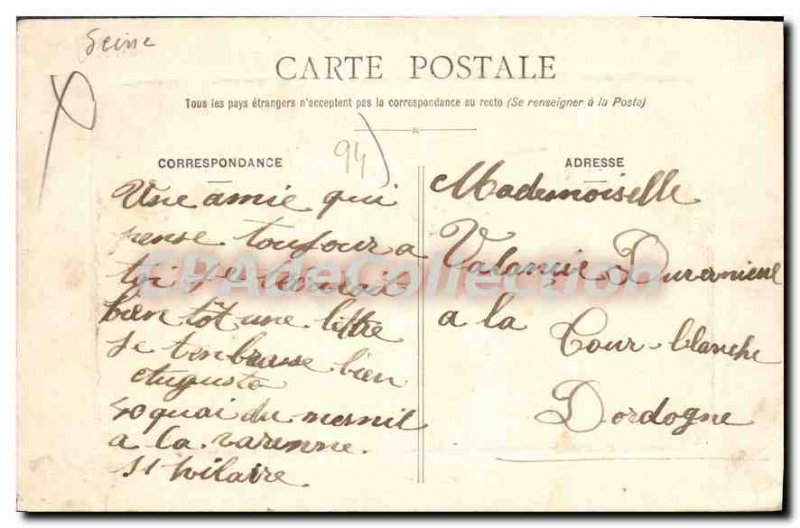 Seine
CARTE POSTALE
Tous les pays étrangers n'acceptent pas la correspondance au recto (Se renseigner à la Poste)
94)
CORRESPONDANCE
Une amie qui
pense toujour a
toi
bien tôt une lettre
Je tenbrasse bien
Augusta
50 quai du mesnil
a la varenne
St hilaire.
ADRESSE
Mademoiselle
a la
Tour-blanche
Dordogne
CPAdeCollection